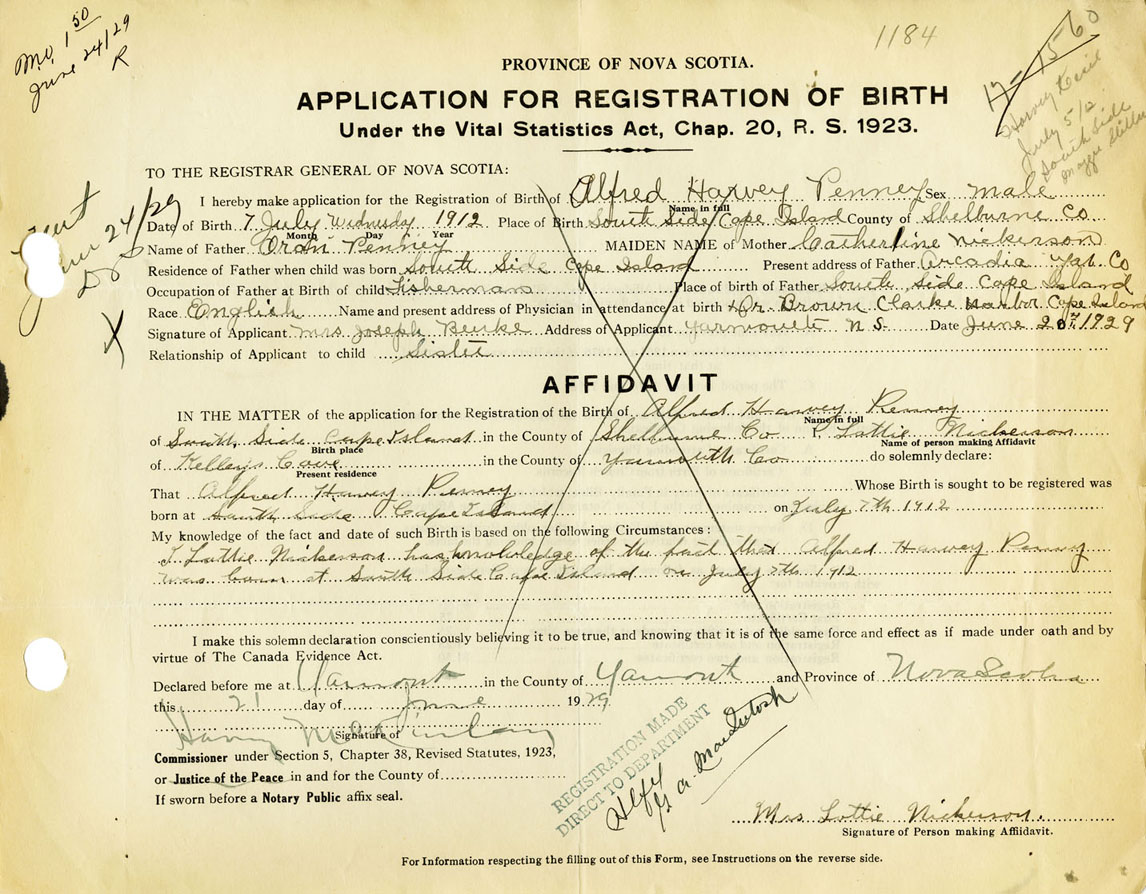 Mo. 1 50
June 24/29
R
1184
17-1560
Harvey
July 5/12
South Side
PROVINCE OF NOVA SCOTIA.
APPLICATION FOR REGISTRATION OF BIRTH
Under the Vital Statistics Act, Chap. 20, R. S. 1923.
TO THE REGISTRAR GENERAL OF NOVA SCOTIA:
I hereby make application for the Registration of Birth of Alfred Harvey Penney Sex male
Name in full
24/29
Date of Birth 7 July Wednesday 1912 Place of Birth South Side Cape Island County of Shelburne Co
Month Day Year
Name of Father Oran Penney MAIDEN NAME of Mother Catherline Nickerson
Residence of Father when child was born South Side Cape Island Present address of Father Arcadia Yar. Co
Occupation of Father at Birth of child Fisherman Place of birth of Father South Side Cape Island
Race English Name and present address of Physician in attendance at birth Dr. Brown Clarks Harbor Cape Island
Signature of Applicant Mrs Joseph Address of Applicant Yarmouth N S. Date June 20th 1929
Relationship of Applicant to child Sister
AFFIDAVIT
IN THE MATTER of the application for the Registration of the Birth of Alfred Harvey Penney
Name in full
of South Side Cape Island in the County of Shelburne Co I, Lottie Nickerson
Birth place Name of person making Affidavit
of Kelleys Cove in the County of Yarmouth Co. do solemnly declare:
Present residence
That Alfred Harvey Penney Whose Birth is sought to be registered was
born at South Side Cape Island on July 7th 1912
My knowledge of the fact and date of such Birth is based on the following Circumstances:
I Lottie Nickerson has knowledge of the fact that Alfred Harvey Penney
was born at South Side Cape Island on July 7th 1912
I make this solemn declaration conscientiously believing it to be true, and knowing that it is of the same force and effect as if made under oath and by
virtue of The Canada Evidence Act.
Declared before me at Yarmout in the County of Yarmout and Province of Nova Scotia
this 21 day of June 1929
Harry McKinlay
Signature of
Commissioner under Section 5, Chapter 38, Revised Statutes, 1923,
or Justice of the Peace in and for the County of
If sworn before a Notary Public affix seal.
REGISTRATION MADE
DIRECT TO DEPARTMENT
MacIntosh
Mrs Lottie Nickerson.
Signature of Person making Affidavit.
For Information respecting the filling out of this Form, see Instructions on the reverse side.